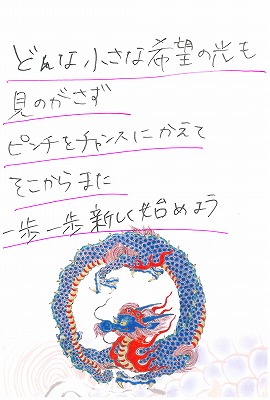 どんな小さな希望の光も
見のがさず
ピンチをチャンスにかえて
そこからまた
一歩一歩新しく始めよう